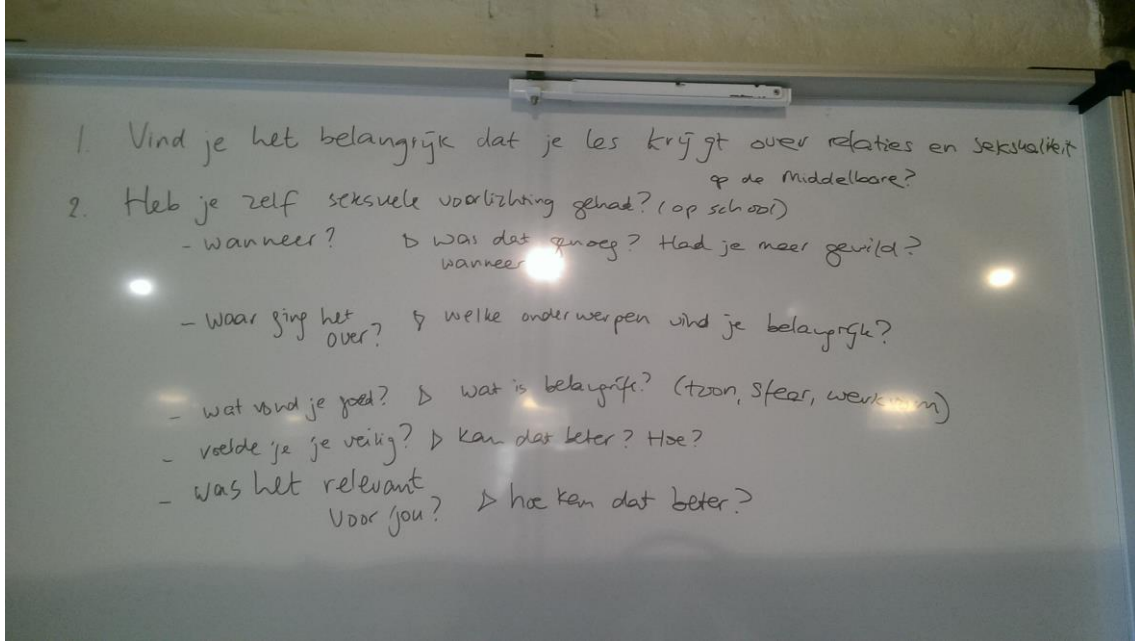 1. Vind je het belangrijk dat je les krijgt over relaties en seksualiteit
op de middelbare?
2. Heb je zelf seksuele voorlichting gehad? (op school)
- wanneer? ▷ was dat genoeg? Had je meer gewild?
wanneer
- waar ging het
over? ▷ welke onderwerpen vind je belangrijk?
- wat vond je goed? ▷ wat is belangrijk? (toon, sfeer, werkvorm)
- voelde je je veilig? ▷ kan dat beter? Hoe?
- was het relevant
voor jou? ▷ hoe kan dat beter?